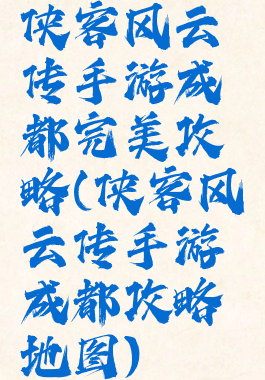 侠客风云
传手游成
都完美攻
略(侠客风
云传手游
成都攻略
地图)